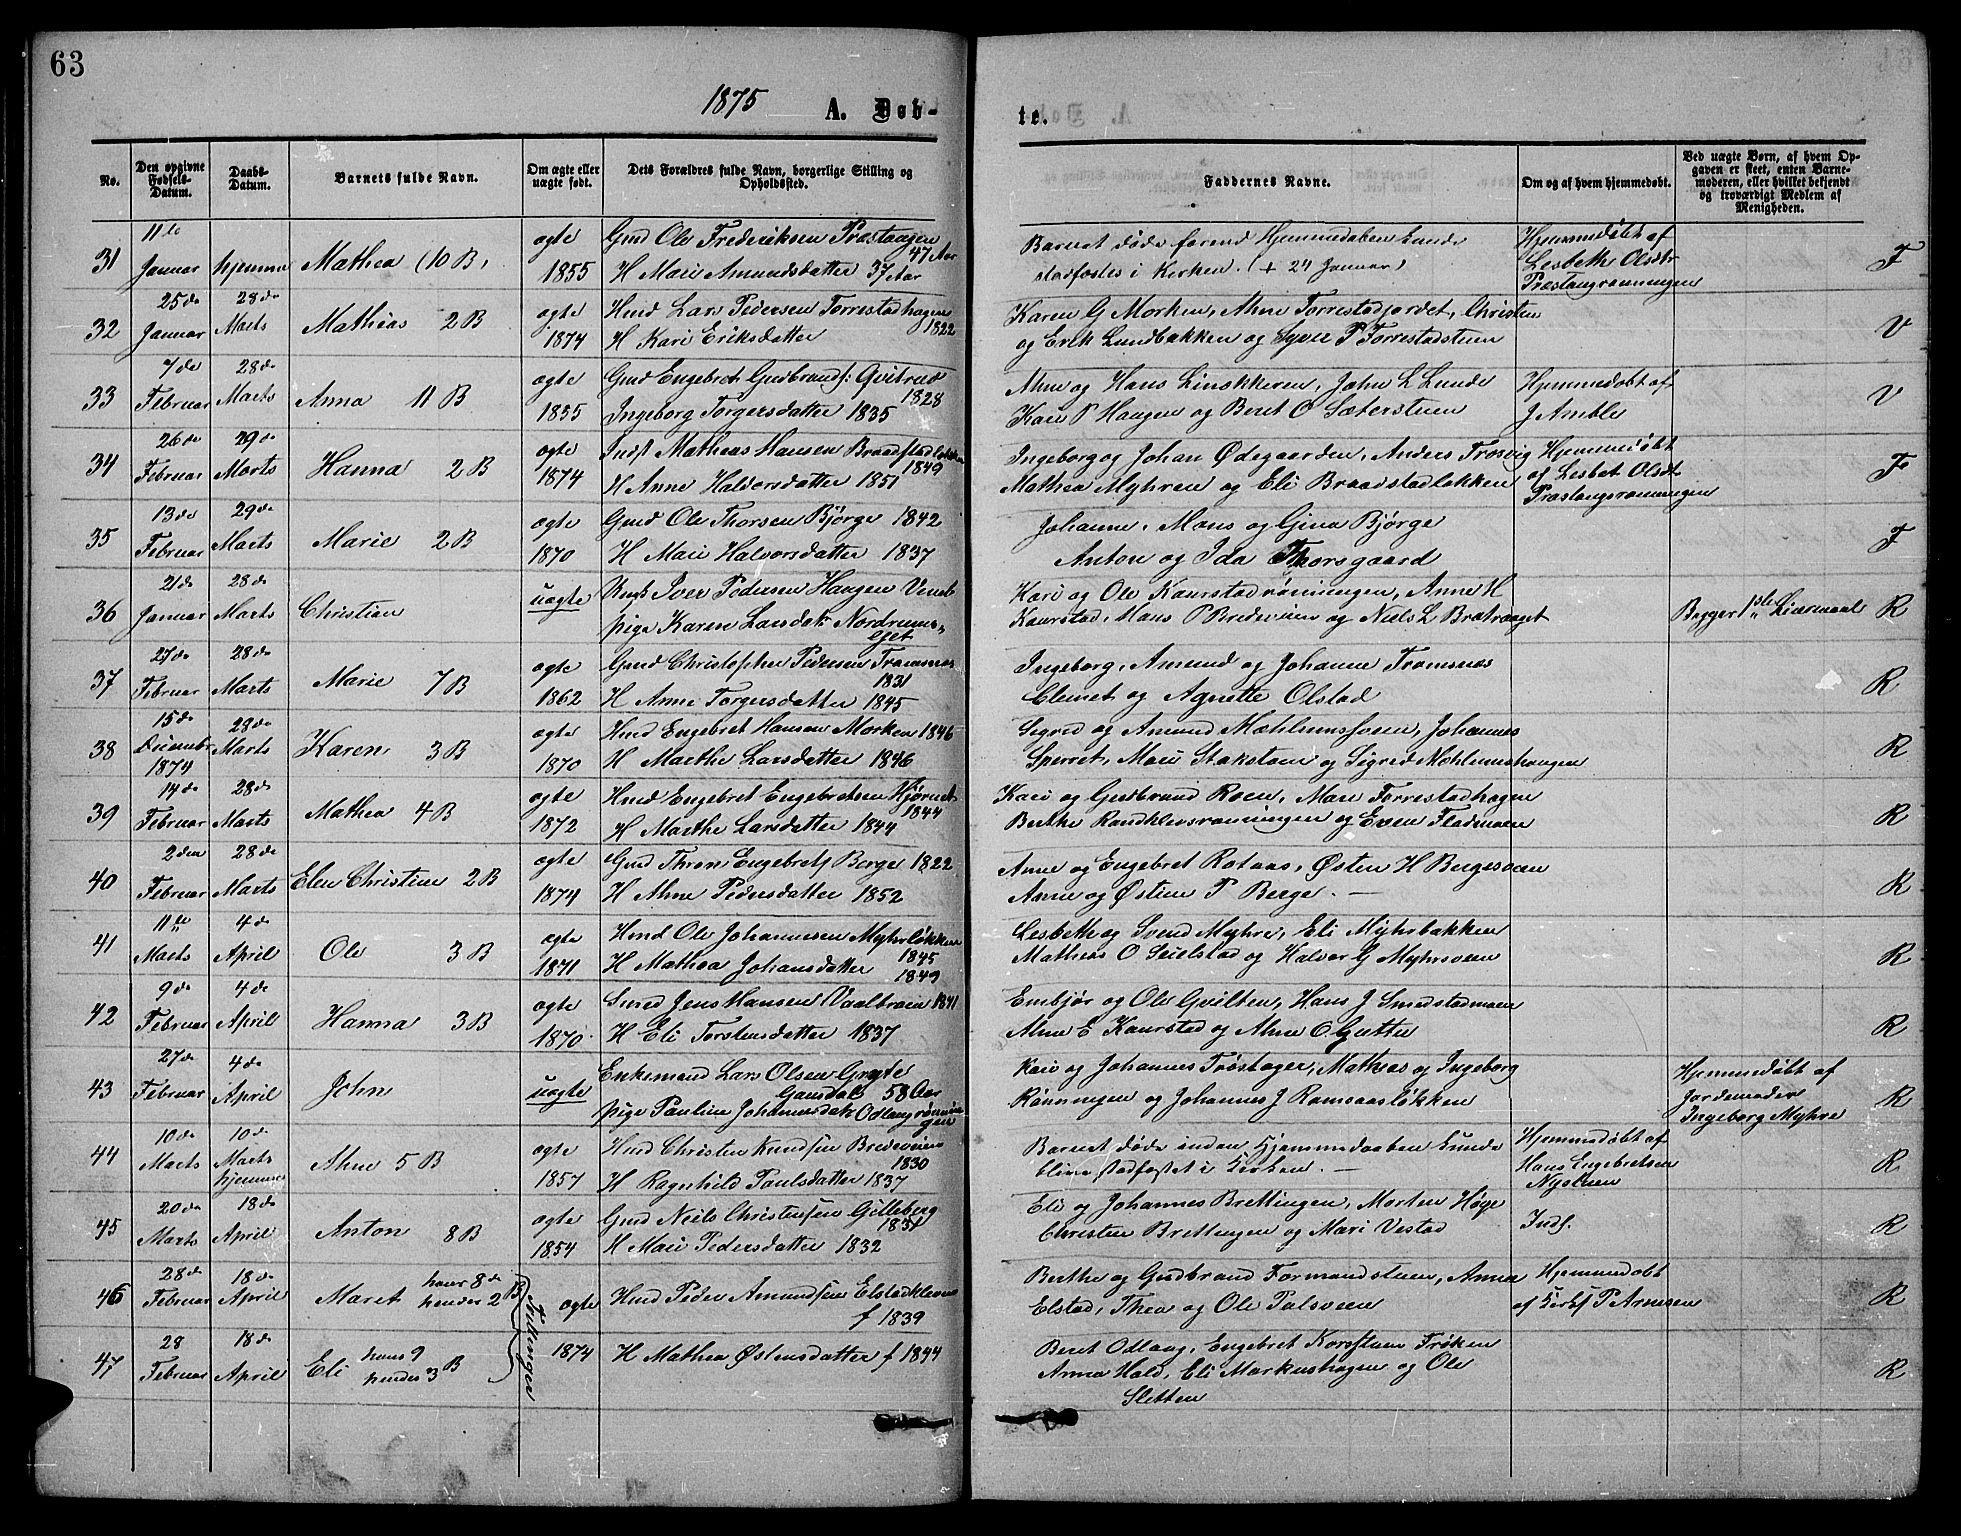 63
1875 A. Døb-
te.
No.
Den opgivne Fødsels-Datum.
Daabs-Datum.
Barnets fulde Navn.
Om ægte eller uægte født.
Dets Forældres fulde Navn, borgerlige Stilling og Opholdssted.
Faddernes Navne.
Om og af hvem hjemmedøbt.
Ved uægte Børn, af hvem Opgaven er skeet, enten Barnemoderen, eller hvilket bekjendt og troværdigt Medlem af Menigheden.
31 11te Januar hjemme Mathea (10 B, ægte 1855
Gmd Ole Frederiksen Præstangen 47 Aar
H Mari Amundsdatter 37 Aar
Barnet døde førend Hjemmedaben kunde
stadfæstes i Kirken. (+ 24 Januar)
Hjemmedøbt af
Lesbeth Olsdtr
Præstangrønningen
F
32 25de Januar 28de Marts Mathias 2 B ægte 1874
Hmd Lars Pedersen Forrestadhagen 1822
H Kari Eriksdatter
Karen G Morken, Ahne Forrestadjordet, Christen
og Erik Lundbakken og Syver P Forrestadstuen
V
33 7de Februar 28de Marts Anna 11 B ægte 1855
Gmd Engebret Gudbrands: Qvitrud 1828
Ingeborg Torgersdatter 1835
Ahne og Hans Linokkeren, John L Lunde
Kari P Haugen og Beret O Sæterstuen
Hjemmedøbt af
J Amble
V
34 26de Februar 29de Marts Hanna 2 B ægte 1874
Indst Mathias Hansen Braadstadløkken 1849
H Anne Halvorsdatter 1851
Ingeborg og Johan Ødegaarden, Anders Frosvig
Mathea Myhren og Eli Braadstadløkken
Hjemmedøbt
af Lesbet Olsdt
Præstangrønningen
F
35 13de Februar 29de Marts Marie 2 B ægte 1870
Gmd Ole Thorsen Bjørge 1842
H Mari Halvorsdatter 1837
Johanne, Mons og Gina Bjørge
Anton og Ida Thorsgaard
F
36 21de Januar 28de Marts Christian uægte
Ungk Iver Pedersen Haugen Veneb
pige Karen Larsdatr Nordrums-
ejet
Kari og Ole Kaurstadrønningen, Anne H
Kaurstad, Hans P Bredevien og Niels L Bratvaaget
Begges 1ste Leiermaal
R
37 27de Februar 28de Marts Marie 7 B ægte 1862
Gmd Christopher Pedersen Tromsnæs 1831
H Anne Torgersdatter 1845
Ingeborg, Amund og Johanne Tromsnæs
Clemet og Agnette Olstad
R
38 15de Decembr 1874 28de Marts Karen 3 B ægte 1870
Hmd Engebret Hansen Morken 1846
H Marthe Larsdatter 1846
Sigrid og Amund Mæhlumsveen, Johannes
Sperret, Mari Stakston og Sigrid Mæhlumshaugen
R
39 14de Februar 28de Marts Mathea 4 B ægte 1872
Hmd Engebret Engebretsen Hjørnet 1844
H Marthe Larsdatter 1844
Kari og Gudbrand Roen, Mari Forrestadhagen
Berthe Randklevsrønningen og Even Fladmoen
R
40 2den Februar 28de Marts Elen Christine 2 B ægte 1874
Gmd Thron Engebrets Berge 1822
H Ahne Pedersdatter 1852
Anne og Engebret Rotaas, Østen H Bergesveen
Anne og Østen P Berge. —
R
41 11te Marts 4de April Ole 3 B ægte 1871
Hmd Ole Johannesen Myhrløkken 1845
H Mathea Johansdatter 1849
Lesbeth og Svend Myhre, Eli Myhrbakken
Mathias O Seielstad og Halvor G Myhrsveen
R
42 9de Februar 4de April Hanna 3 B ægte 1870
Smed Jens Hansen Vaalbroen 1841
H Eli Torstensdatter 1837
Embjør og Ole Gvilten, Hans J Smedstadmoen
Ahne E Kaurstad og Ahne O Gutta
R
43 27de Februar 4de April John uægte
Enkemand Lars Olsen Grytø
Gausdal 58 Aar
pige Pauline Johannesdatr Odlangrønnin
gen
Kari og Johannes Trøstager, Mathias og Ingeborg
Rønningen og Johannes J Ramsaasløkken
Hjemmedøbt af
Jordemoder
Ingeborg Myhre
R
44 10de Marts 10de Marts hjemme Ahne 5 B ægte 1857
Hmd Christen Knudsen Bredevien 1830
H Ragnhild Paulsdatter 1837
Barnet døde inden Hjemmedaaben kunde
blive stadfæstet i Kirken. —
Hjemmedøbt af
Hans Engebretsen
Nystuen
R
45 20de Marts 18de April Anton 8 B ægte 1854
Gmd Niels Christensen Gilleberg 1831
H Mari Pedersdatter 1832
Eli og Johannes Brettingen, Morten Høge
Christen Brettingen og Mari Vestad
Inds.
R
46 28de Februar 18de April Maret hans 8de hendes 2 B Tvillinger ægte
Hmd Peder Amundsen Elstadkleven
f 1839
Berthe og Gudbrand Formandstuen, Anna
Elstad, Thea og Ole Palsveen
Hjemmedøbt
af Kirks P Arnesen
R
47 28 Februar 18de April Eli hans 9 hendes 3 B 1874
H Mathea Østensdatter f 1844
Beret Odlaug, Engebret Korsstuen Frøken
Anna Hald, Eli Markushagen og Ole
Sletten
R